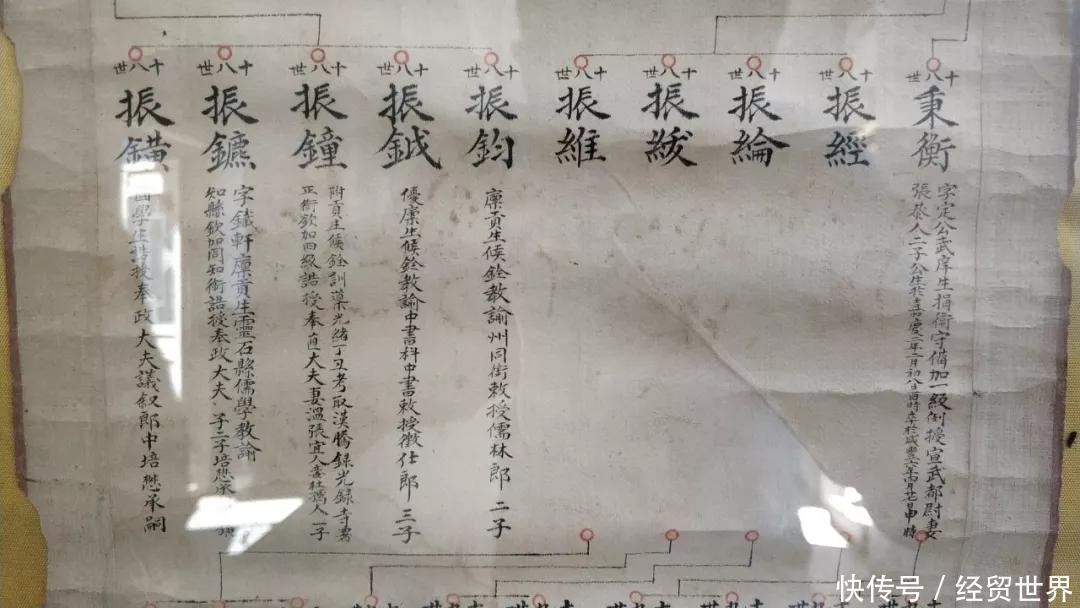 十八世
秉衡
字定公武庠生捐衛守備加一級例授宣武都尉妻
張恭人二子公生於嘉慶二年二月初八日酉時卒於咸豐
十八世
振經
十八世
振綸
十八世
振紱
十八世
振維
十八世
振鈞
廩貢生候銓教諭州同銜敕授儒林郎 二子
十八世
振鉞
優廩生候銓教諭中書科中書敕授徵仕郎 三子
十八世
振鐘
附貢生候銓訓導光緒丁丑考取漢謄錄光錄寺署
正銜欽加四級誥授奉直大夫妻溫張宜人妾杜孺人一子
十八世
振鑣
字鑣軒廩貢生靈石縣儒學教諭
知縣欽加同知銜誥授奉政大夫 子三子培懋承
十八世
振鐄
授奉政大夫議叙郎中培懋承嗣
快传号 / 经贸世界